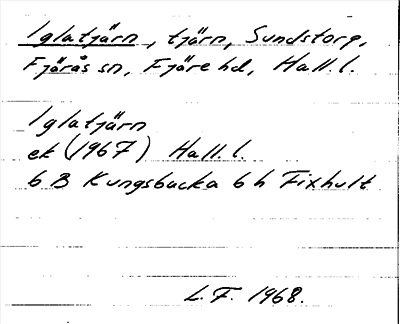 Iglatjärn, tjärn, Sundstorp,
Fjärås sn, Fjäre hd, Hall. l.
Iglatjärn
ek (1967) Hall. l.
6 B Kungsbacka 6 h Fixhult
L.F. 1968.